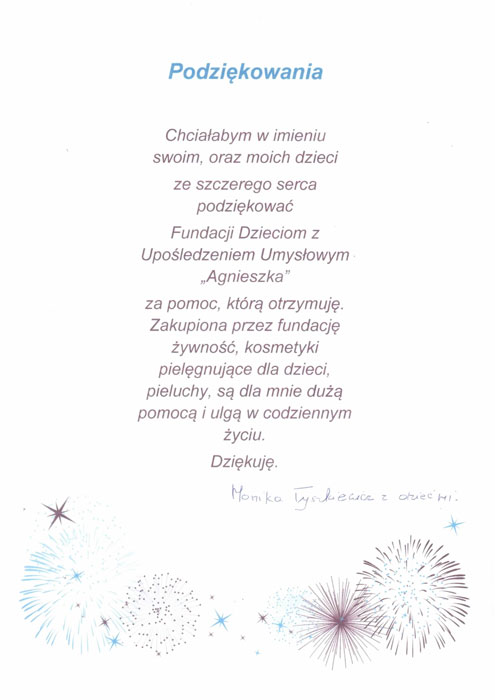 Podziękowania
Chciałabym w imieniu
swoim, oraz moich dzieci
ze szczerego serca
podziękować
Fundacji Dzieciom z
Upośledzeniem Umysłowym
„Agnieszka”
za pomoc, którą otrzymuję.
Zakupiona przez fundację
żywność, kosmetyki
pielęgnujące dla dzieci,
pieluchy, są dla mnie dużą
pomocą i ulgą w codziennym
życiu.
Dziękuję.
Monika z dziećmi.